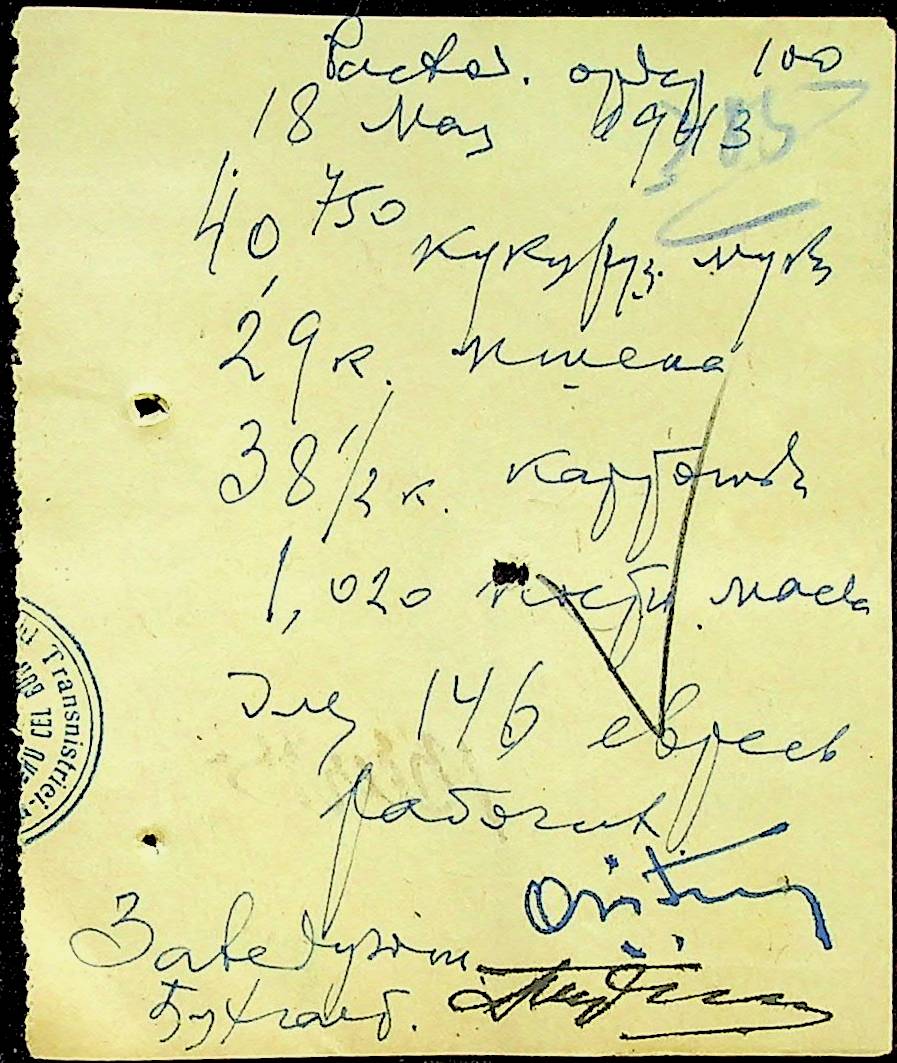 Расход. ордер 100
18 Мая 1943
385
40,750 кукуруз. муки
29 к. пшена
38 1/2 к. картошки
1,020 постн. масла
Для 146 евреев
рабочих
Заведующий
Бухгалт.
Transnistriei